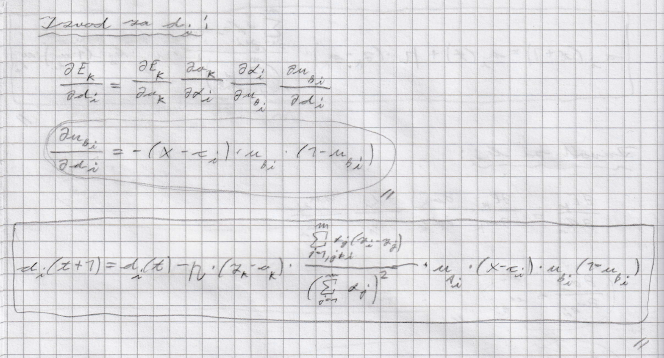 Izvod za d_i:
∂E_k/∂d_i = ∂E_k/∂o_k ∂o_k/∂α_i ∂α_i/∂μ_{B_i} ∂μ_{B_i}/∂d_i
∂μ_{B_i}/∂d_i = -(x - c_i) · μ_{B_i} · (1 - μ_{B_i})
d_i(t+1) = d_i(t) - η · (y_k - o_k) · (∑_{j=1, j≠i}^{m} α_j (z_i - z_j)) / (∑_{j=1}^{m} α_j)^2 · μ_{A_i} · (x - c_i) · μ_{B_i} (1 - μ_{B_i})